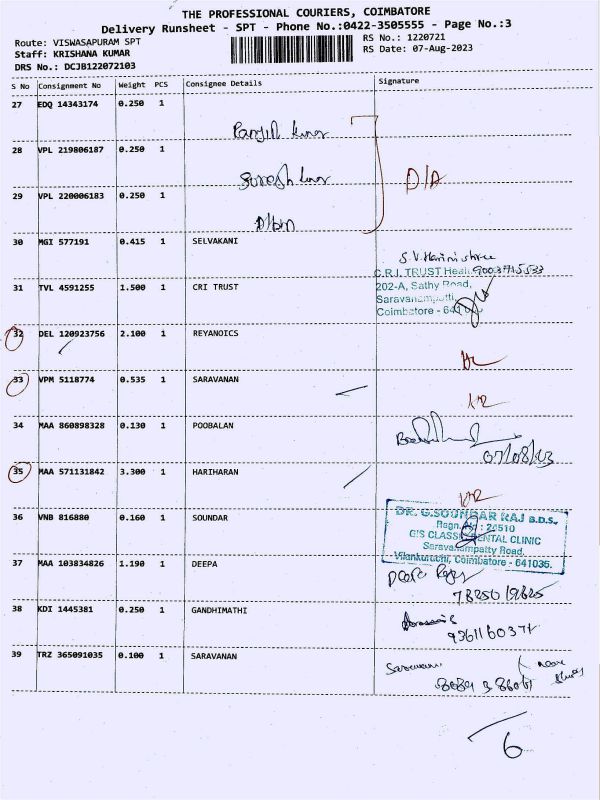 THE PROFESSIONAL COURIERS, COIMBATORE
Delivery Runsheet - SPT - Phone No.:0422-3505555 - Page No.:3
Route: VISWASAPURAM SPT
RS No.: 1220721
Staff: KRISHANA KUMAR
RS Date: 07-Aug-2023
DRS No.: DCJB122072103
S No Consignment No Weight PCS Consignee Details Signature
27 EDQ 14343174 0.250 1
28 VPL 219806187 0.250 1
Suresh kumar
D/A
29 VPL 220006183 0.250 1
30 MGI 577191 0.415 1 SELVAKANI
S.V.Harini shree
C.R.I. TRUST
31 TVL 4591255 1.500 1 CRI TRUST
202-A, Sathy Road,
Coimbatore - 641
32 DEL 120923756 2.100 1 REYANOICS
33 VPM 5118774 0.535 1 SARAVANAN
34 MAA 860898328 0.130 1 POOBALAN
07/08/23
35 MAA 571131842 3.300 1 HARIHARAN
36 VNB 816880 0.160 1 SOUNDAR
DR. G.SOUNDAR RAJ B.D.S.,
Regn. : 24510
G'S CLASSIC DENTAL CLINIC
Saravanampatty Road,
Vilankuruchi, Coimbatore - 641035.
37 MAA 103834826 1.190 1 DEEPA
Deepa
38 KDI 1445381 0.250 1 GANDHIMATHI
39 TRZ 365091035 0.100 1 SARAVANAN
Saravanan
6